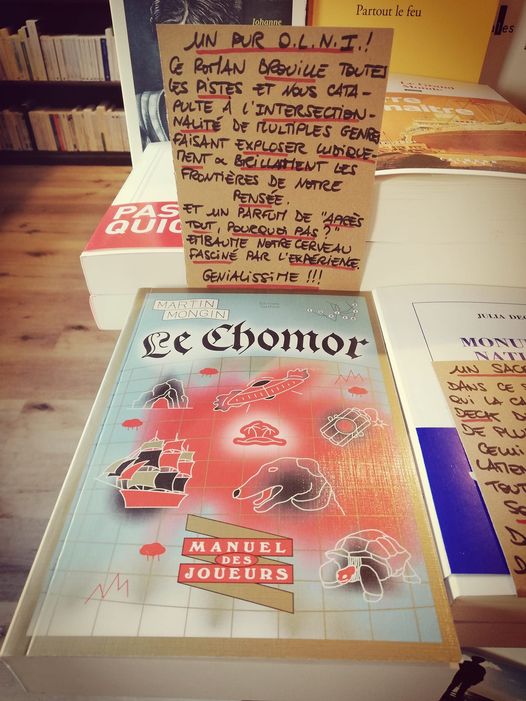 Johanne
Partout le feu
UN PUR O.L.N.I.!
CE ROMAN BROUILLE TOUTES
LES PISTES ET NOUS CATA-
PULTE À L'INTERSECTION-
NALITÉ DE MULTIPLES GENRE
FAISANT EXPLOSER LUDIQUE-
MENT & BRILLAMMENT LES
FRONTIÈRES DE NOTRE
PENSÉE.
ET UN PARFUM DE "APRÈS
TOUT, POURQUOI PAS?"
EMBAUME NOTRE CERVEAU
FASCINÉ PAR L'EXPÉRIENCE.
GENIALISSIME !!!
Le Grand
PAS
QUIG
MARTIN
MONGIN
Le Chomor
MANUEL
DES
JOUEURS
JULIA DEC
MONU
NAT
UN SAC
DANS CE
QUI LA CA
DECK D
DE PLU
CELUI
LATE
TOUT